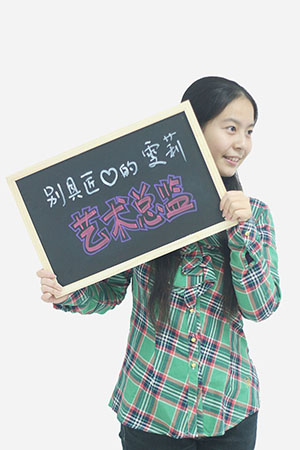 别具匠♡的 雯莉
艺术总监